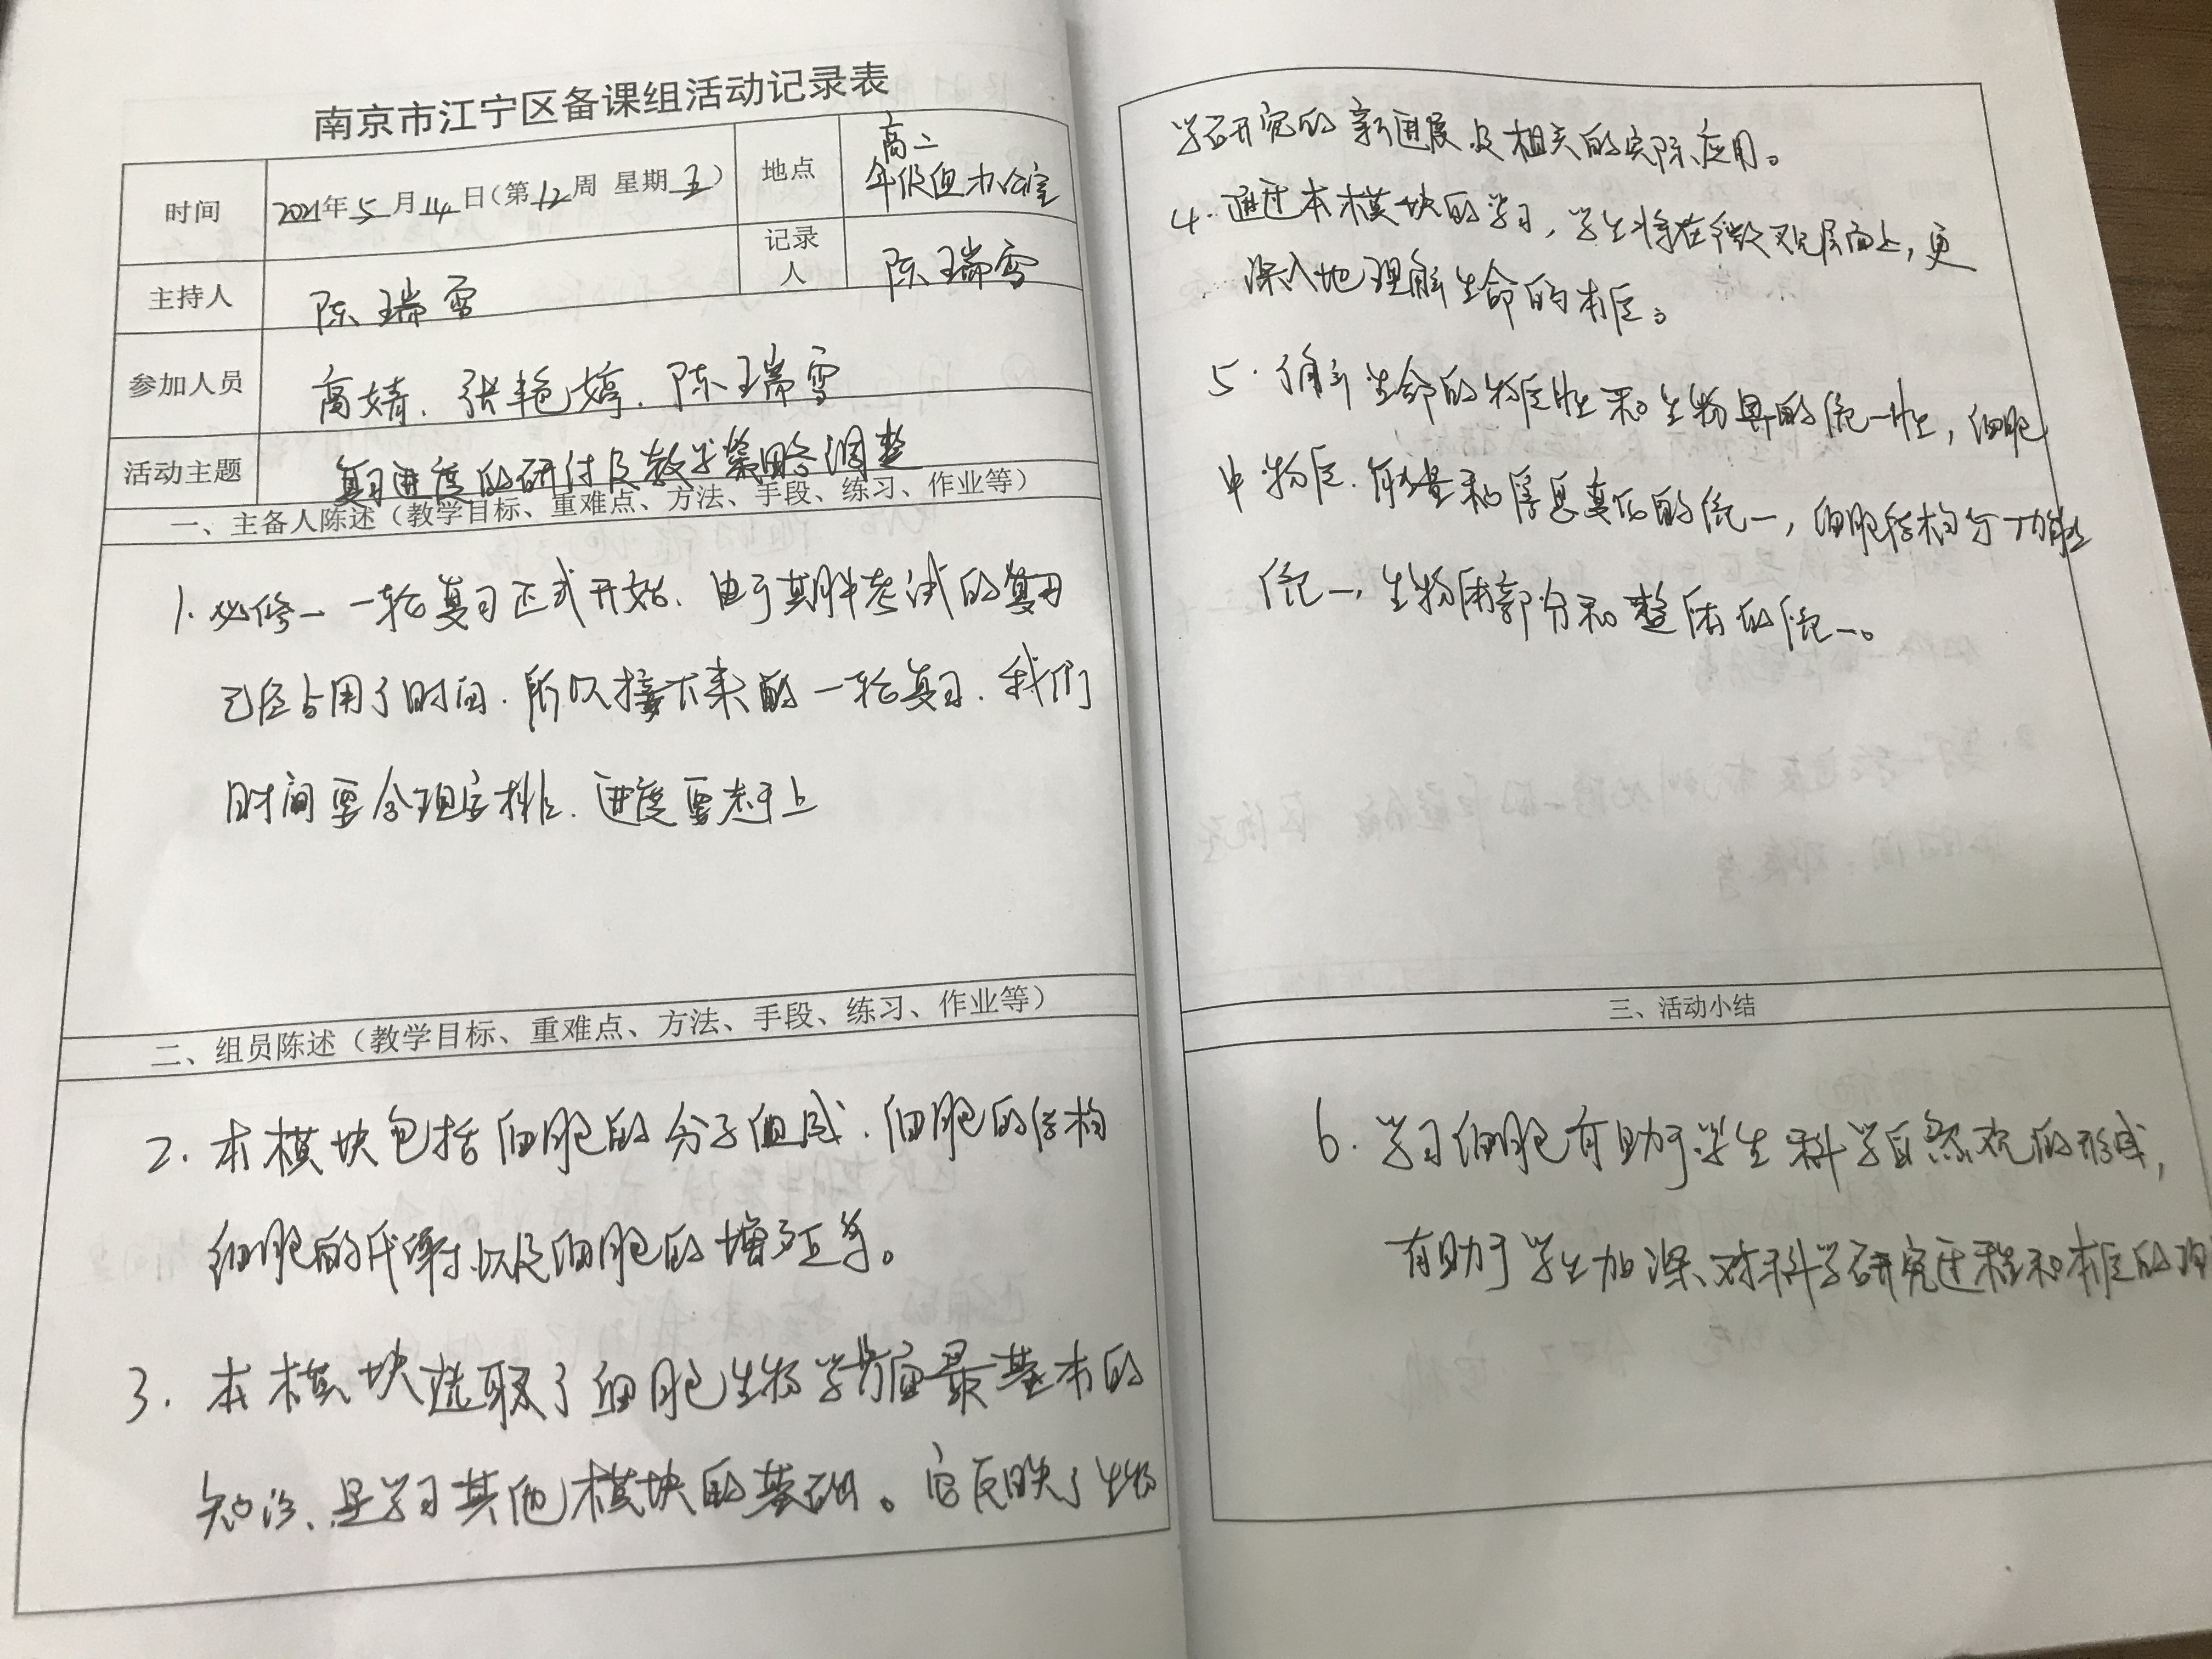 南京市江宁区备课组活动记录表
时间 2021年5月14日(第12周 星期五) 地点 高二年级组办公室
主持人 陈瑞雪 记录人 陈瑞雪
参加人员 高婧、张艳婷、陈瑞雪
活动主题 复习进度的研讨及教学策略调整
一、主备人陈述（教学目标、重难点、方法、手段、练习、作业等）
1. 必修一一轮复习正式开始、由于期中考试的复习
已经占用了时间、所以接下来的一轮复习、我们
时间要合理安排、进度要赶上
二、组员陈述（教学目标、重难点、方法、手段、练习、作业等）
2. 本模块包括细胞的分子组成、细胞的结构
细胞的代谢以及细胞的增殖等。
3. 本模块选取了细胞生物学方面最基本的
知识、是学习其他模块的基础。它反映了生物
学研究的新进展及相关的实际应用。
4. 通过本模块的学习，学生将在微观层面上，更
深入地理解生命的本质。
5. 了解生命的物质性和生物界的统一性，细胞
中物质、能量和信息变化的统一，细胞结构与功能的
统一，生物体部分和整体的统一。
三、活动小结
6. 学习细胞有助于学生科学自然观的形成，
有助于学生加深对科学研究过程和本质的理